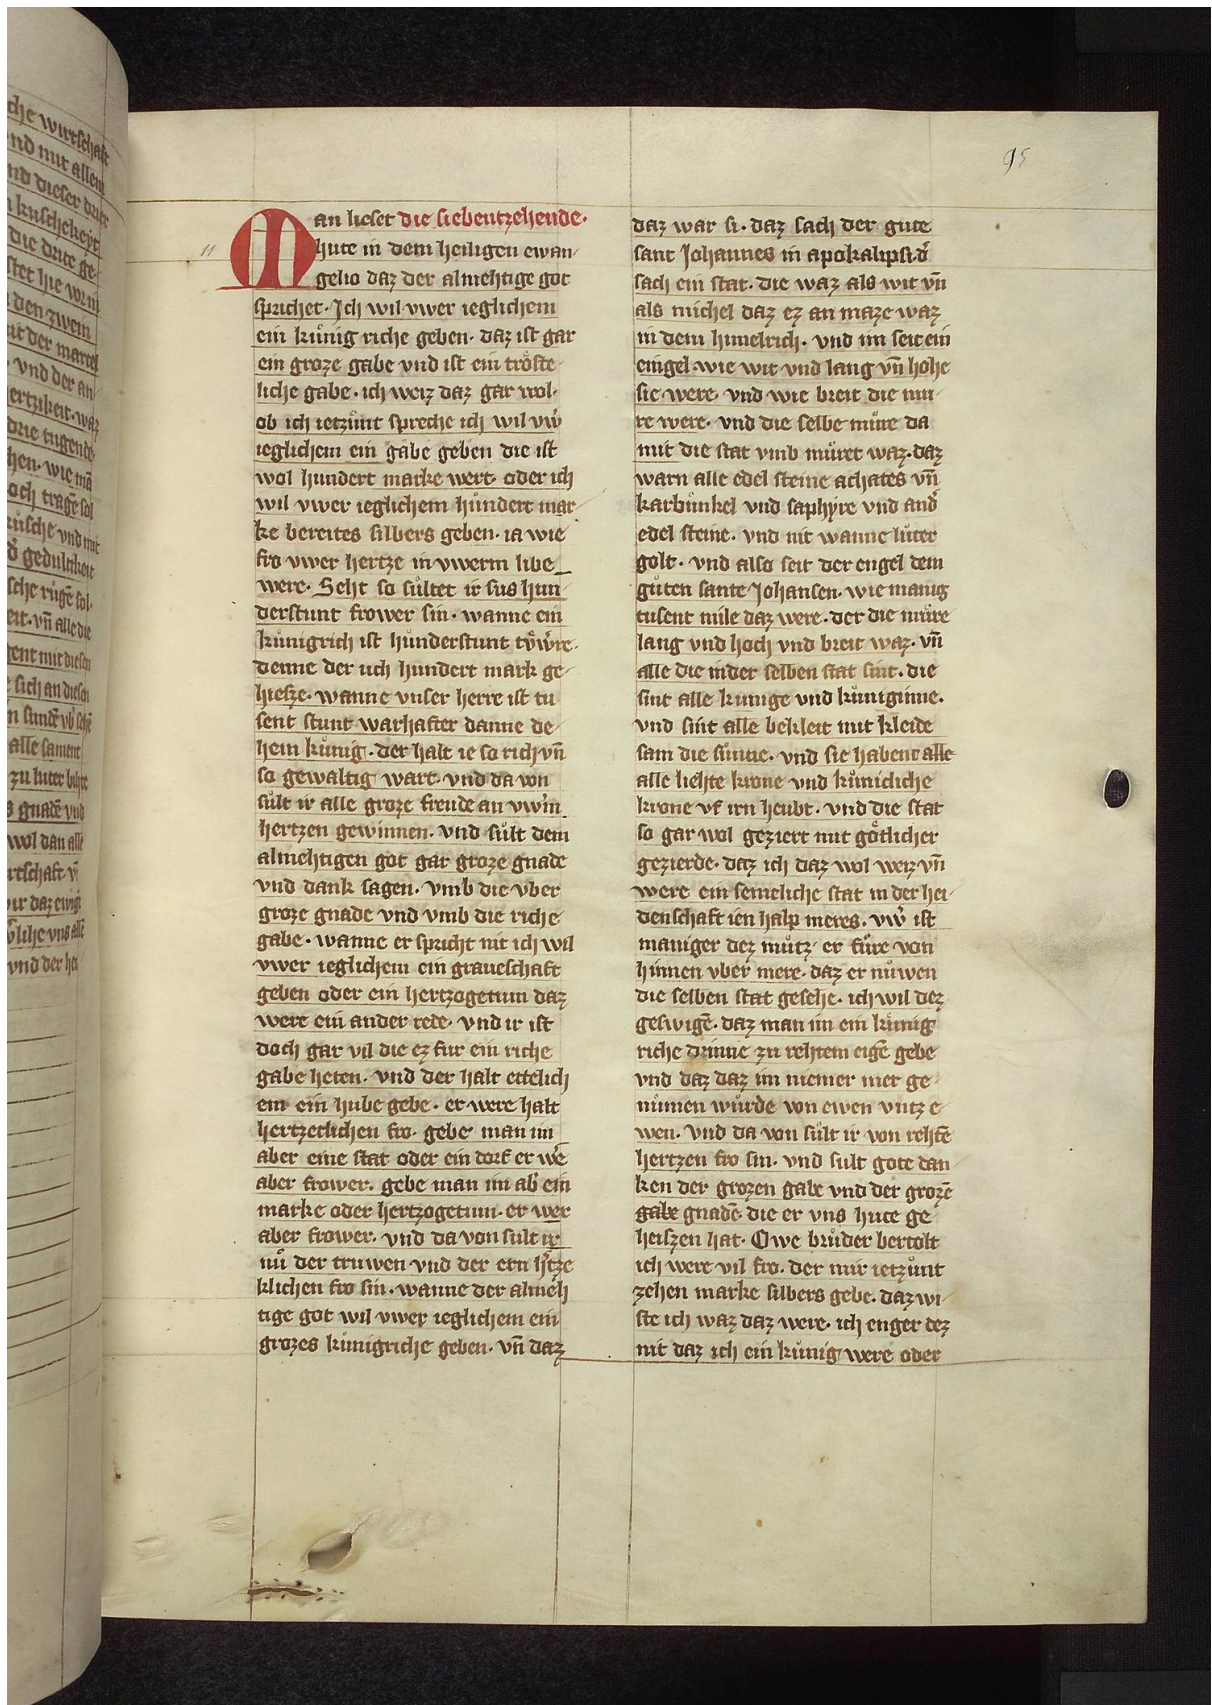 che wirtschaft
nd mit allem
nd dieser drier
kuschekeyt
die drite ge
den zwein
it der martel
vnd der an
ertzikeit waz
drie tugende
hen. wie mā
och tragē sol
kusche vnd mit
gedultikeit
sche rugē sol.
eit. vn̄ alle die
gent mit diesen
sich an diesen
alle sament
zu luter bihte
gnadē vnd
wol dan alle
rtschaft vn̄
ir daz ewige
vnd der hei
95
Man lieset die siebentzehende.
hute in dem heiligen ewan
gelio daz der almehtige got
sprichet. Ich wil vwer ieglichem
ein kůnig riche geben. daz ist gar
ein groze gabe vnd ist ein trőste
liche gabe. ich weiz daz gar wol.
ob ich ietzůnt spreche ich wil vw̓
ieglichem ein gabe geben die ist
wol hundert marke wert. oder ich
wil vwer ieglichem hůndert mar
ke bereites silbers geben. ia wie
fro vwer hertze in vwerm libe
were. Seht so sůltet ir sus hun
derstunt frower sin. wanne ein
kůnigrich ist hůnderstunt tv̂w̓re.
denne der uch hundert mark ge
hiesze. wanne vnser herre ist tu
sent stunt warhafter danne de
hein kůnig. der halt ie so rich vn̄
so gewaltig wart. vnd da von
sůlt ir alle groze freude an vw̓m
hertzen gewinnen. vnd sůlt dem
almehtigen got gar groze gnade
vnd dank sagen. vmb die vber
groze gnade vnd vmb die riche
gabe. wanne er spricht nit ich wil
vwer ieglichem ein graueschaft
geben oder ein hertzogetum daz
were ein ander rede. vnd ir ist
doch gar vil die ez fur ein riche
gabe heten. vnd der halt ettelich
em ein hube gebe. er were halt
hertzeclichen fro. gebe man im
aber eine stat oder ein dorf er we̓
aber frower. gebe man im ab̓ ein
marke oder hertzogetum. er wer
aber frower. vnd da von sult ir
nů der truwen vnd der ern h̓tze
klichen fro sin. wanne der almeh
tige got wil vwer ieglichem ein
grozes kůnigriche geben. vn̄ daz
daz war si. daz sach der gute
sant Johannes in apokalipsi. d̓
sach ein stat. die waz als wit vn̄
als michel daz ez an maze waz
in dem himelrich. vnd im seit ein
eingel wie wit vnd lang vn̄ hohe
sie were. vnd wie breit die mu
re were. vnd die selbe můre da
mit die stat vmb můret waz. daz
warn alle edel steine achates vn̄
karbůnkel vnd saphyre vnd and̓
edel steine. vnd nit wanne lůter
golt. vnd also seit der engel dem
gůten sante Johansen. wie manig
tusent mile daz were. der die můre
lang vnd hoch vnd breit waz. vn̄
alle die in der selben stat sint. die
sint alle kunige vnd kůniginne.
vnd sint alle bekleit mit kleide
sam die sunne. vnd sie habent alle
alle liehte krone vnd kůnicliche
krone vf irn heubt. vnd die stat
so gar wol geziert mit gőtlicher
gezierde. daz ich daz wol weiz vn̄
were ein semeliche stat in der hei
denschaft ien halp meres. vw̓ ist
maniger dez můtz er fůre von
hinnen vber mere. daz er nůwen
die selben stat gesehe. ich wil dez
geswigē. daz man im ein kůnig
riche drinne zu rehtem eigē gebe
vnd daz daz im niemer mer ge
nůmen wůrde von ewen vntz e
wen. vnd da von sůlt ir von rehtē
hertzen fro sin. vnd sult gote dan
ken der grozen gabe vnd der grozē
gabe gnadē die er vns hute ge
heiszen hat. Owe brůder bertolt
ich were vil fro. der mir ietzůnt
zehen marke silbers gebe. daz wi
ste ich waz daz were. ich enger dez
nit daz ich ein kůnig were oder